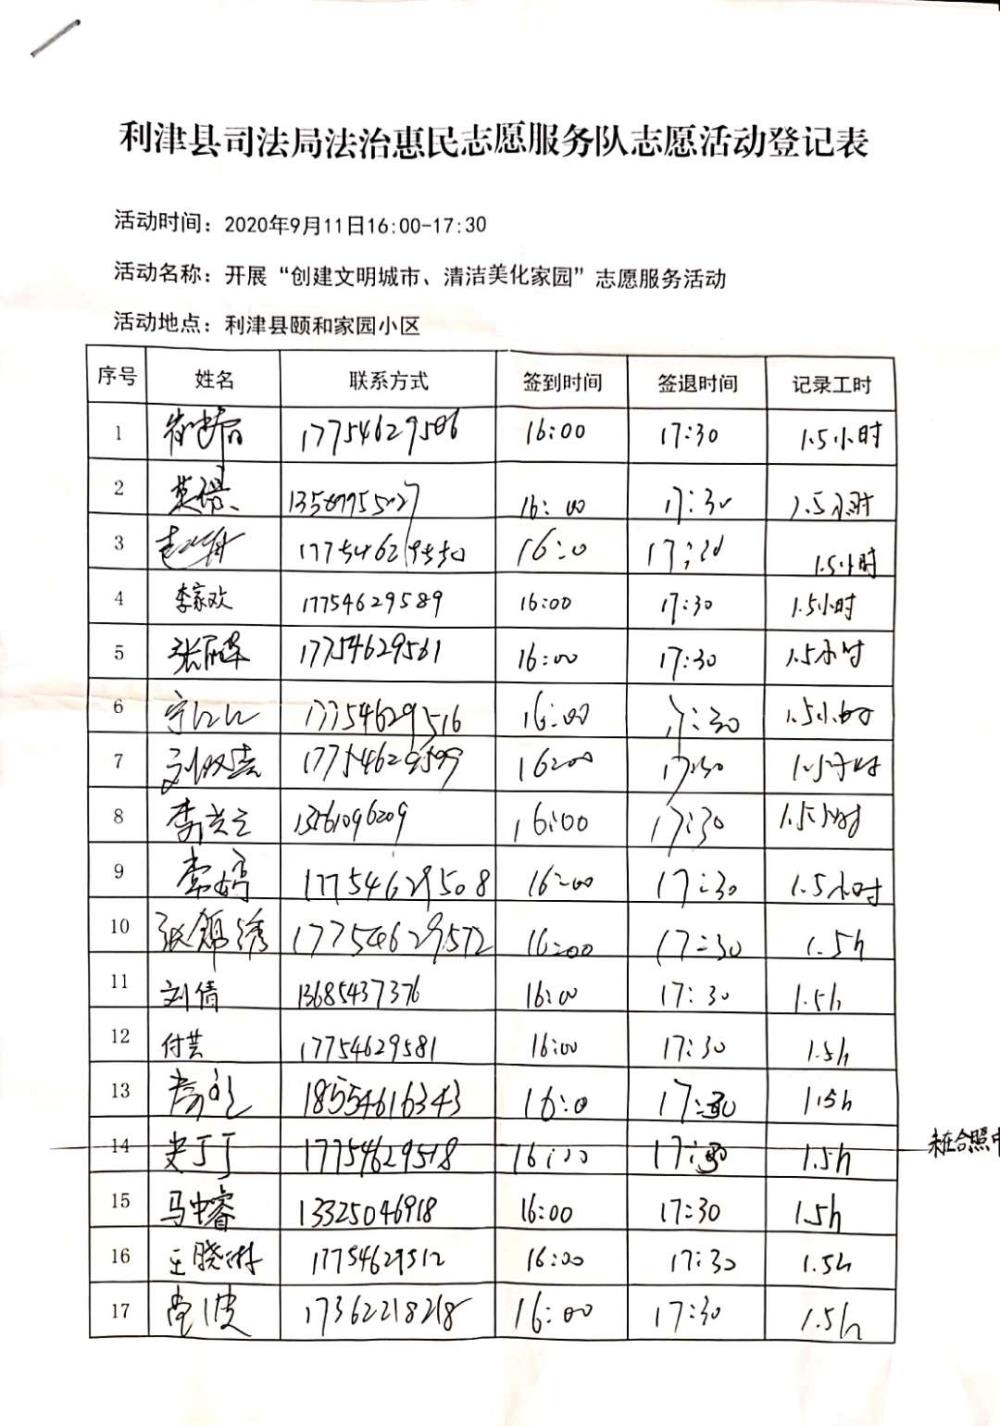 利津县司法局法治惠民志愿服务队志愿活动登记表
活动时间：2020年9月11日16:00-17:30
活动名称：开展“创建文明城市、清洁美化家园”志愿服务活动
活动地点：利津县颐和家园小区
序号 姓名 联系方式 签到时间 签退时间 记录工时
1 17754629506 16:00 17:30 1.5小时
2 16:00 17:30 1.5小时
3 16:0 17:30 1.5小时
4 李家欢 17754629589 16:00 17:30 1.5小时
5 张丽华 17754629561 16:00 17:30 1.5小时
6 宁江江 17754629516 16:00 17:30 1.5小时
7 17754629599 16:00 17:30 1.5小时
8 李兰之 13561096209 16:00 17:30 1.5小时
9 常婷 17754629508 16:00 17:30 1.5小时
10 张锦绣 17754629572 16:00 17:30 1.5h
11 刘倩 13685437376 16:00 17:30 1.5h
12 付芸 17754629581 16:00 17:30 1.5h
13 18554616343 16:0 17:30 1.5h
14 史丁丁 17754629518 16:00 17:30 1.5h 未在合照中
15 马中睿 13325046918 16:00 17:30 1.5h
16 王晓琳 17754629512 16:00 17:30 1.5h
17 17362218218 16:00 17:30 1.5h